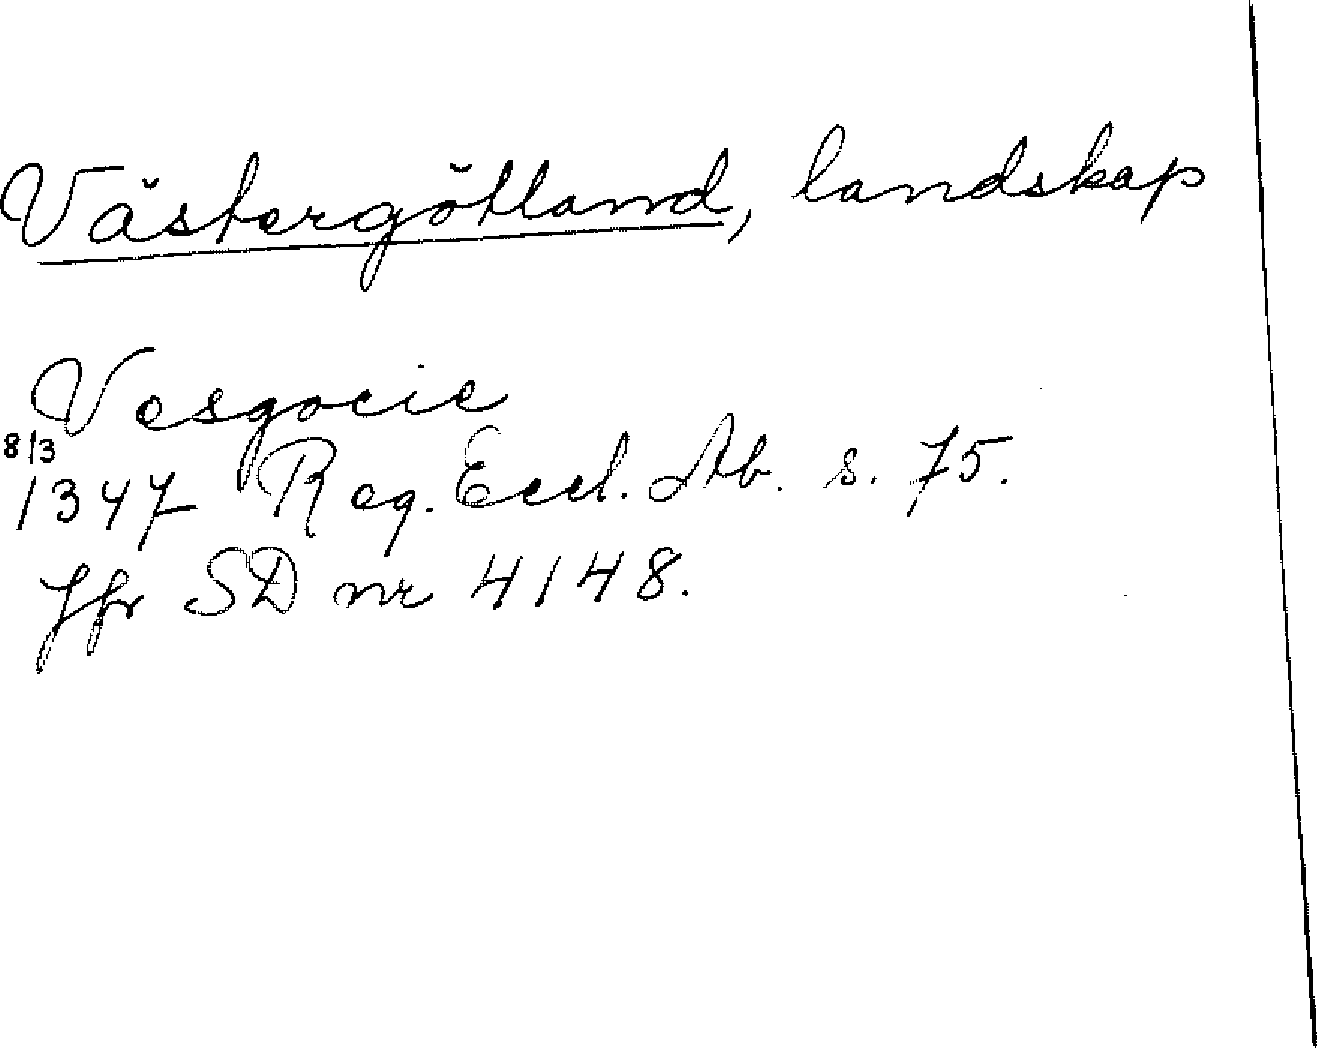 Västergötland, landskap
Vesgocie
8/3
1347 Reg. Eccl. Ab. s. 75.
Jfr SD nr 4148.